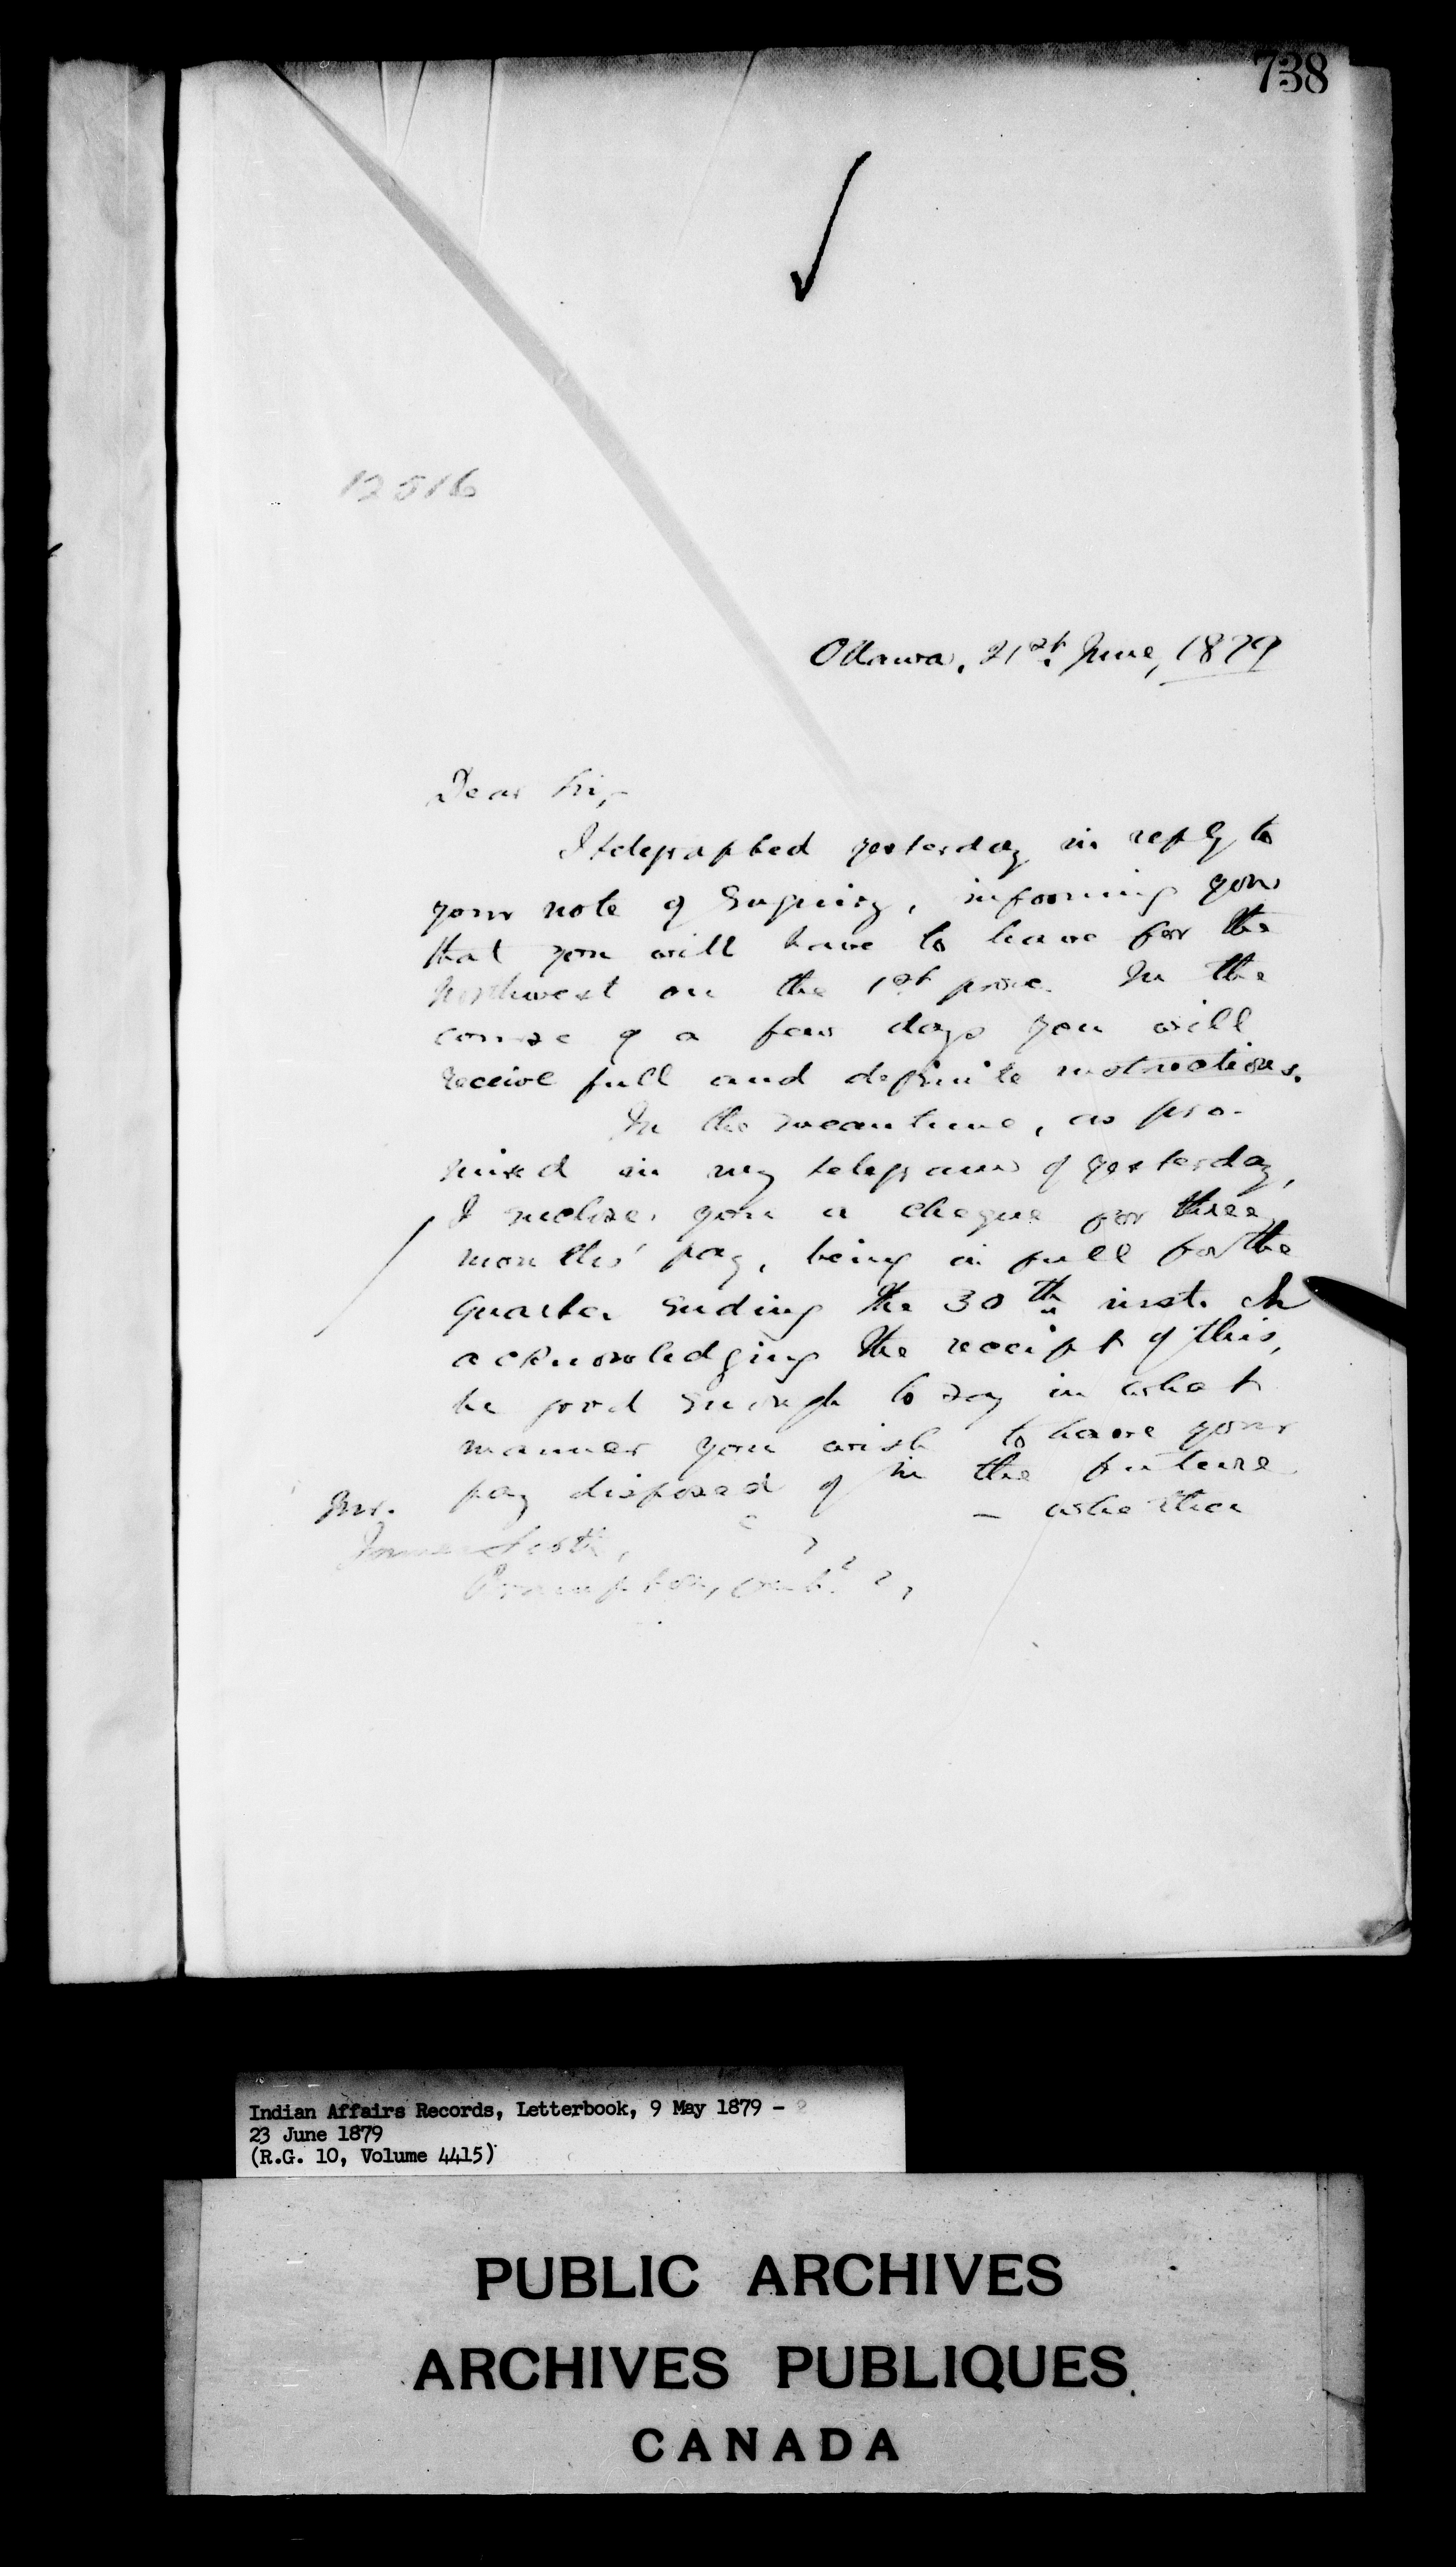 738
12516
Ottawa, 21st June, 1879
Dear Sir,
I telegraphed yesterday in reply to
your note of Enquiry, informing you
that you will have to leave for the
Northwest on the 1st prox. In the
course of a few days you will
receive full and definite instructions.
In the meantime, as pro-
mised in my telegram of yesterday,
I enclose you a cheque for three
months' pay, being in full for the
Quarter Ending the 30th inst. In
acknowledging the receipt of this,
be good Enough to say in what
manner you wish to have your
pay disposed of in the future
— whether
Mr.
James Scott,
Brampton, Ont.
Indian Affairs Records, Letterbook, 9 May 1879 -
23 June 1879
(R.G. 10, Volume 4415)
PUBLIC ARCHIVES
ARCHIVES PUBLIQUES
CANADA